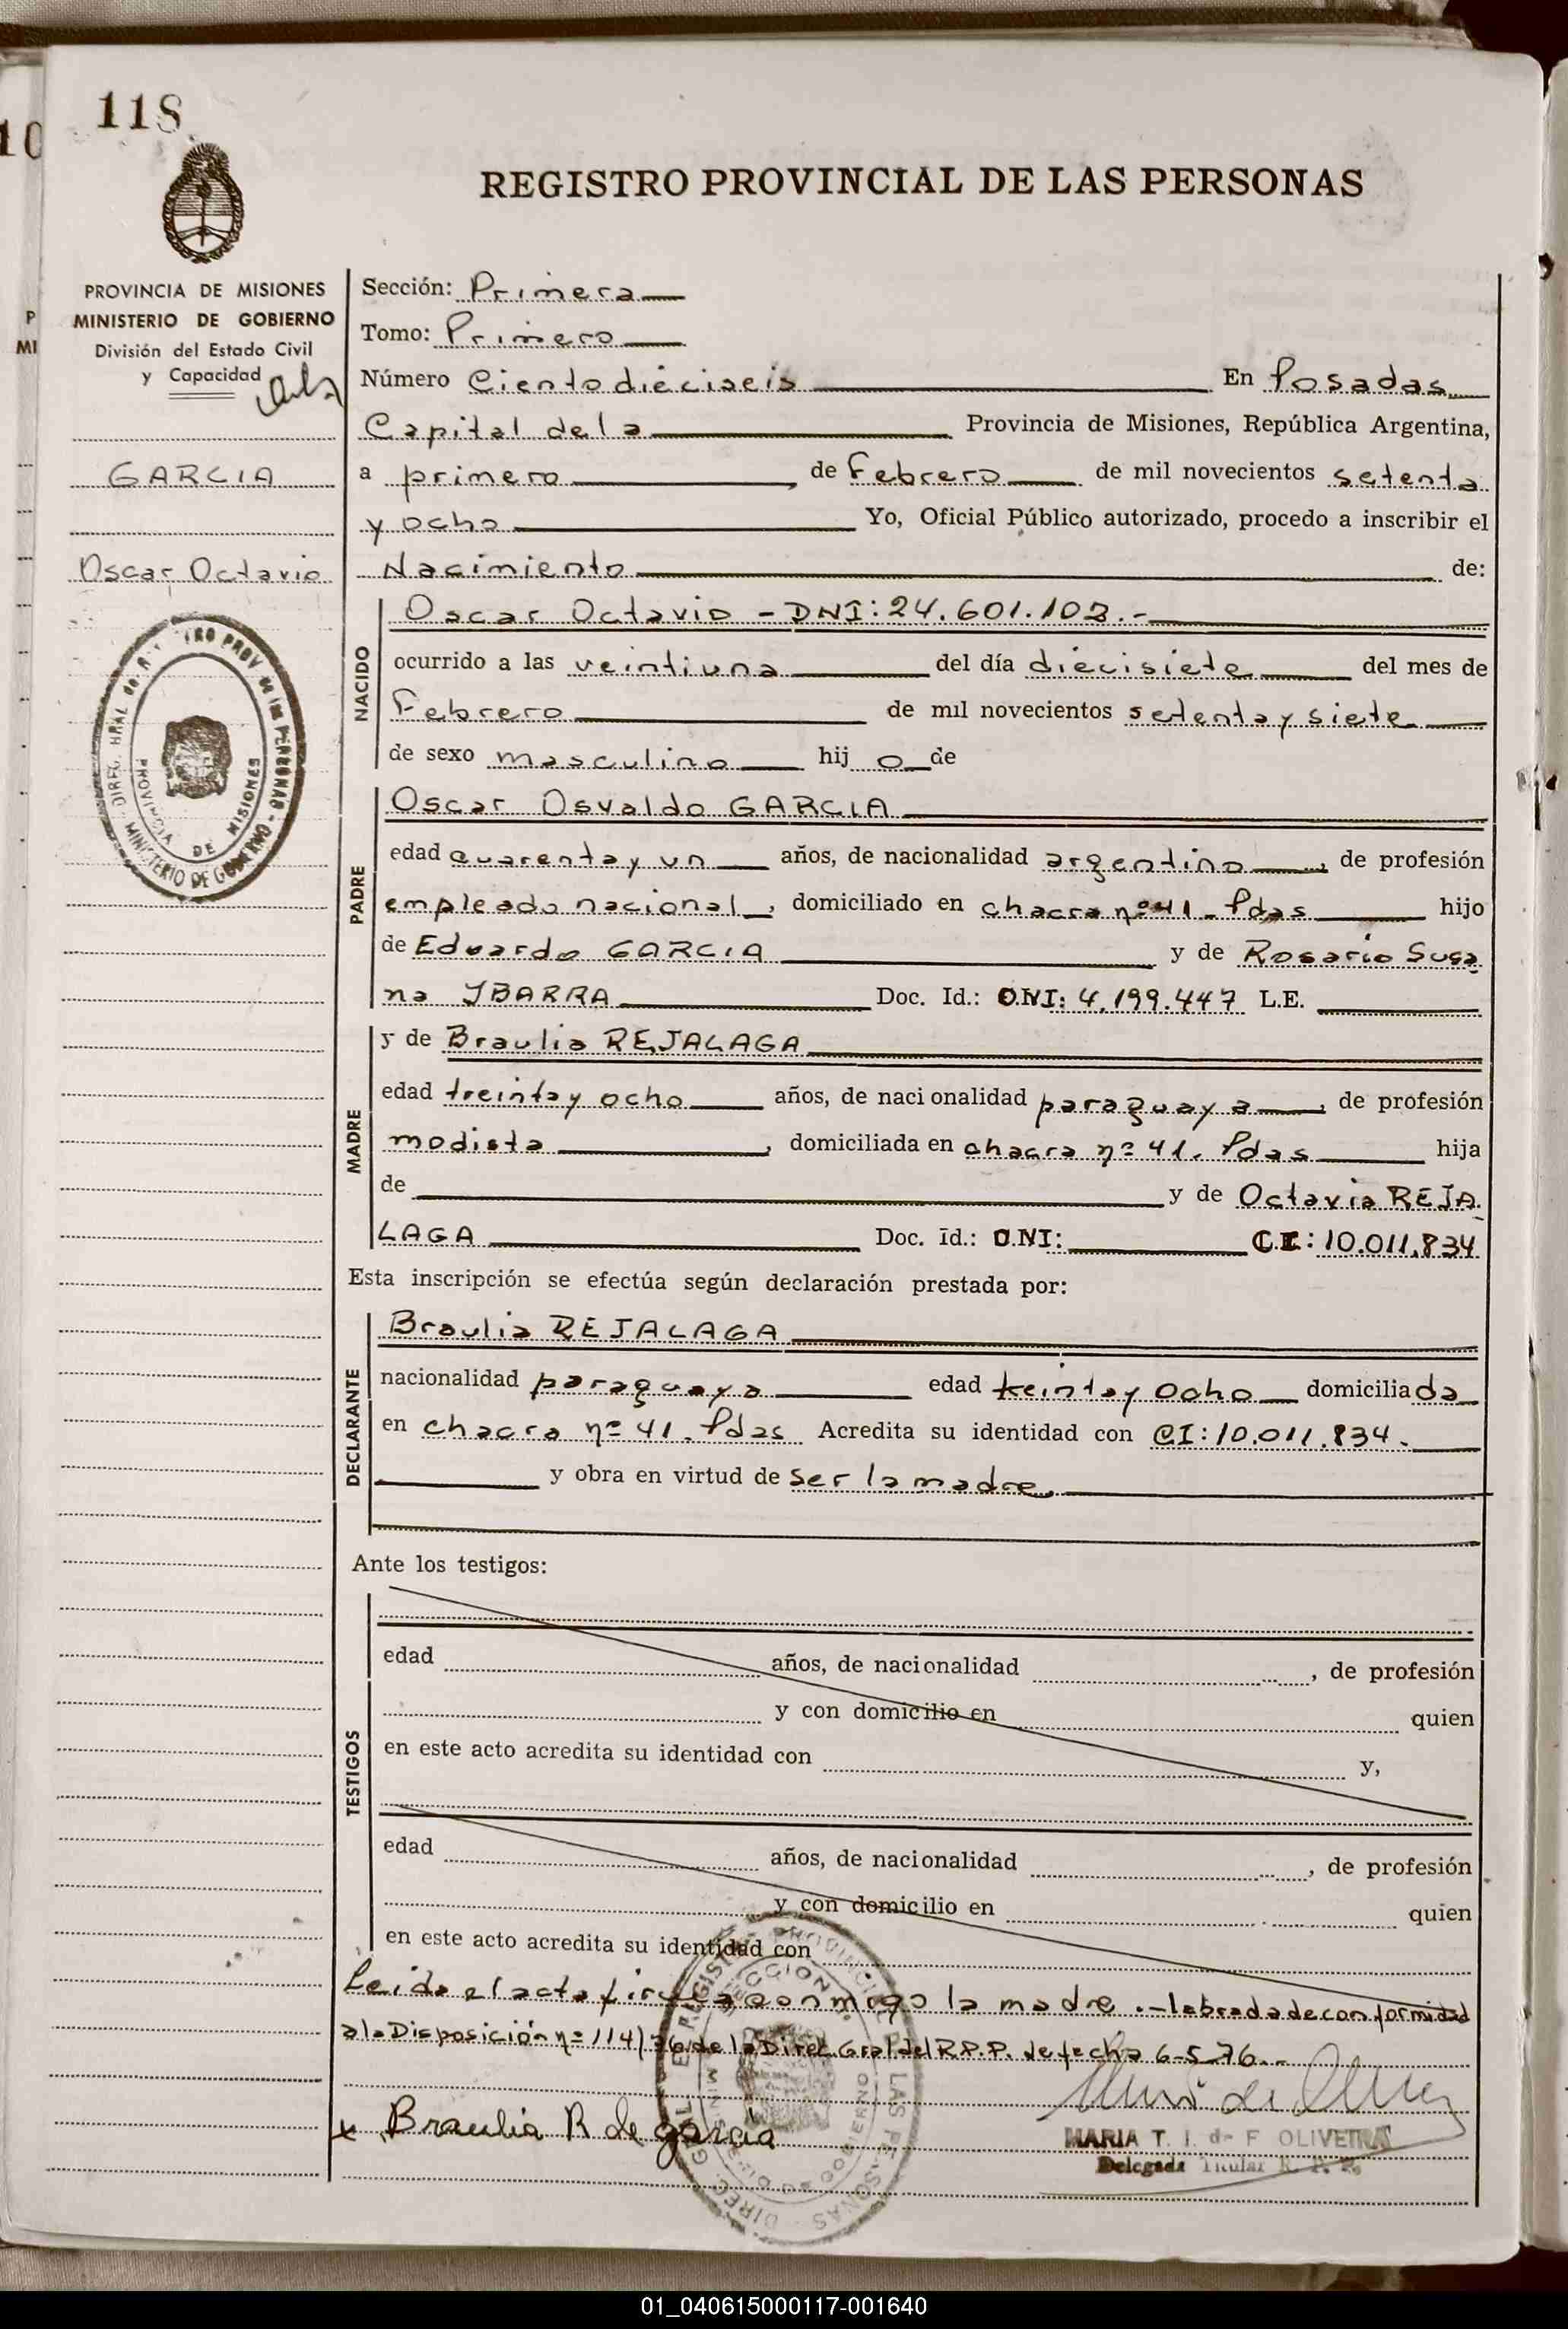 118
10
REGISTRO PROVINCIAL DE LAS PERSONAS
PROVINCIA DE MISIONES
MINISTERIO DE GOBIERNO
División del Estado Civil
y Capacidad
GARCIA
Oscar Octavio
P
MI
Sección: Primera
Tomo: Primero
Número Ciento dieciseis En Posadas
Capital de la Provincia de Misiones, República Argentina,
a primero de Febrero de mil novecientos setenta
y ocho Yo, Oficial Público autorizado, procedo a inscribir el
Nacimiento de:
NACIDO
Oscar Octavio - DNI: 24.601.103.-
ocurrido a las veintiuna del día diecisiete del mes de
Febrero de mil novecientos setenta y siete
de sexo masculino hij o de
PADRE
Oscar Osvaldo GARCIA
edad cuarenta y un años, de nacionalidad argentino, de profesión
empleado nacional, domiciliado en chacra nº 41 - Pdas hijo
de Eduardo GARCIA y de Rosario Susa
na YBARRA Doc. Id.: D.NI: 4.199.447 L.E.
MADRE
y de Braulia REJALAGA
edad treinta y ocho años, de nacionalidad paraguaya, de profesión
modista, domiciliada en chacra nº 41. Pdas hija
de y de Octavia REJA
LAGA Doc. Id.: D.NI: C.I.: 10.011.834
Esta inscripción se efectúa según declaración prestada por:
DECLARANTE
Braulia REJALAGA
nacionalidad paraguaya edad treinta y ocho domiciliada
en chacra nº 41. Pdas Acredita su identidad con CI: 10.011.834.
y obra en virtud de ser la madre.
Ante los testigos:
TESTIGOS
edad años, de nacionalidad , de profesión
y con domicilio en quien
en este acto acredita su identidad con y,
edad años, de nacionalidad , de profesión
y con domicilio en quien
en este acto acredita su identidad con
Leida el acta firma conmigo la madre.- labrada de conformidad
a la Disposición nº 114/76 de la Direc. Gral del R.P.P. de fecha 6-5-76.-
x Braulia R de garcia
MARIA T. I. de F OLIVEIRA
Delegada Titular R. P. P.
PROVINCIA DE MISIONES
MINISTERIO DE GOBIERNO
01_040615000117-001640